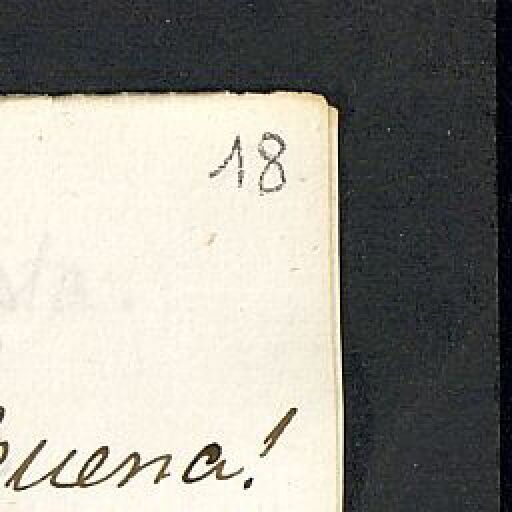 18
buena!